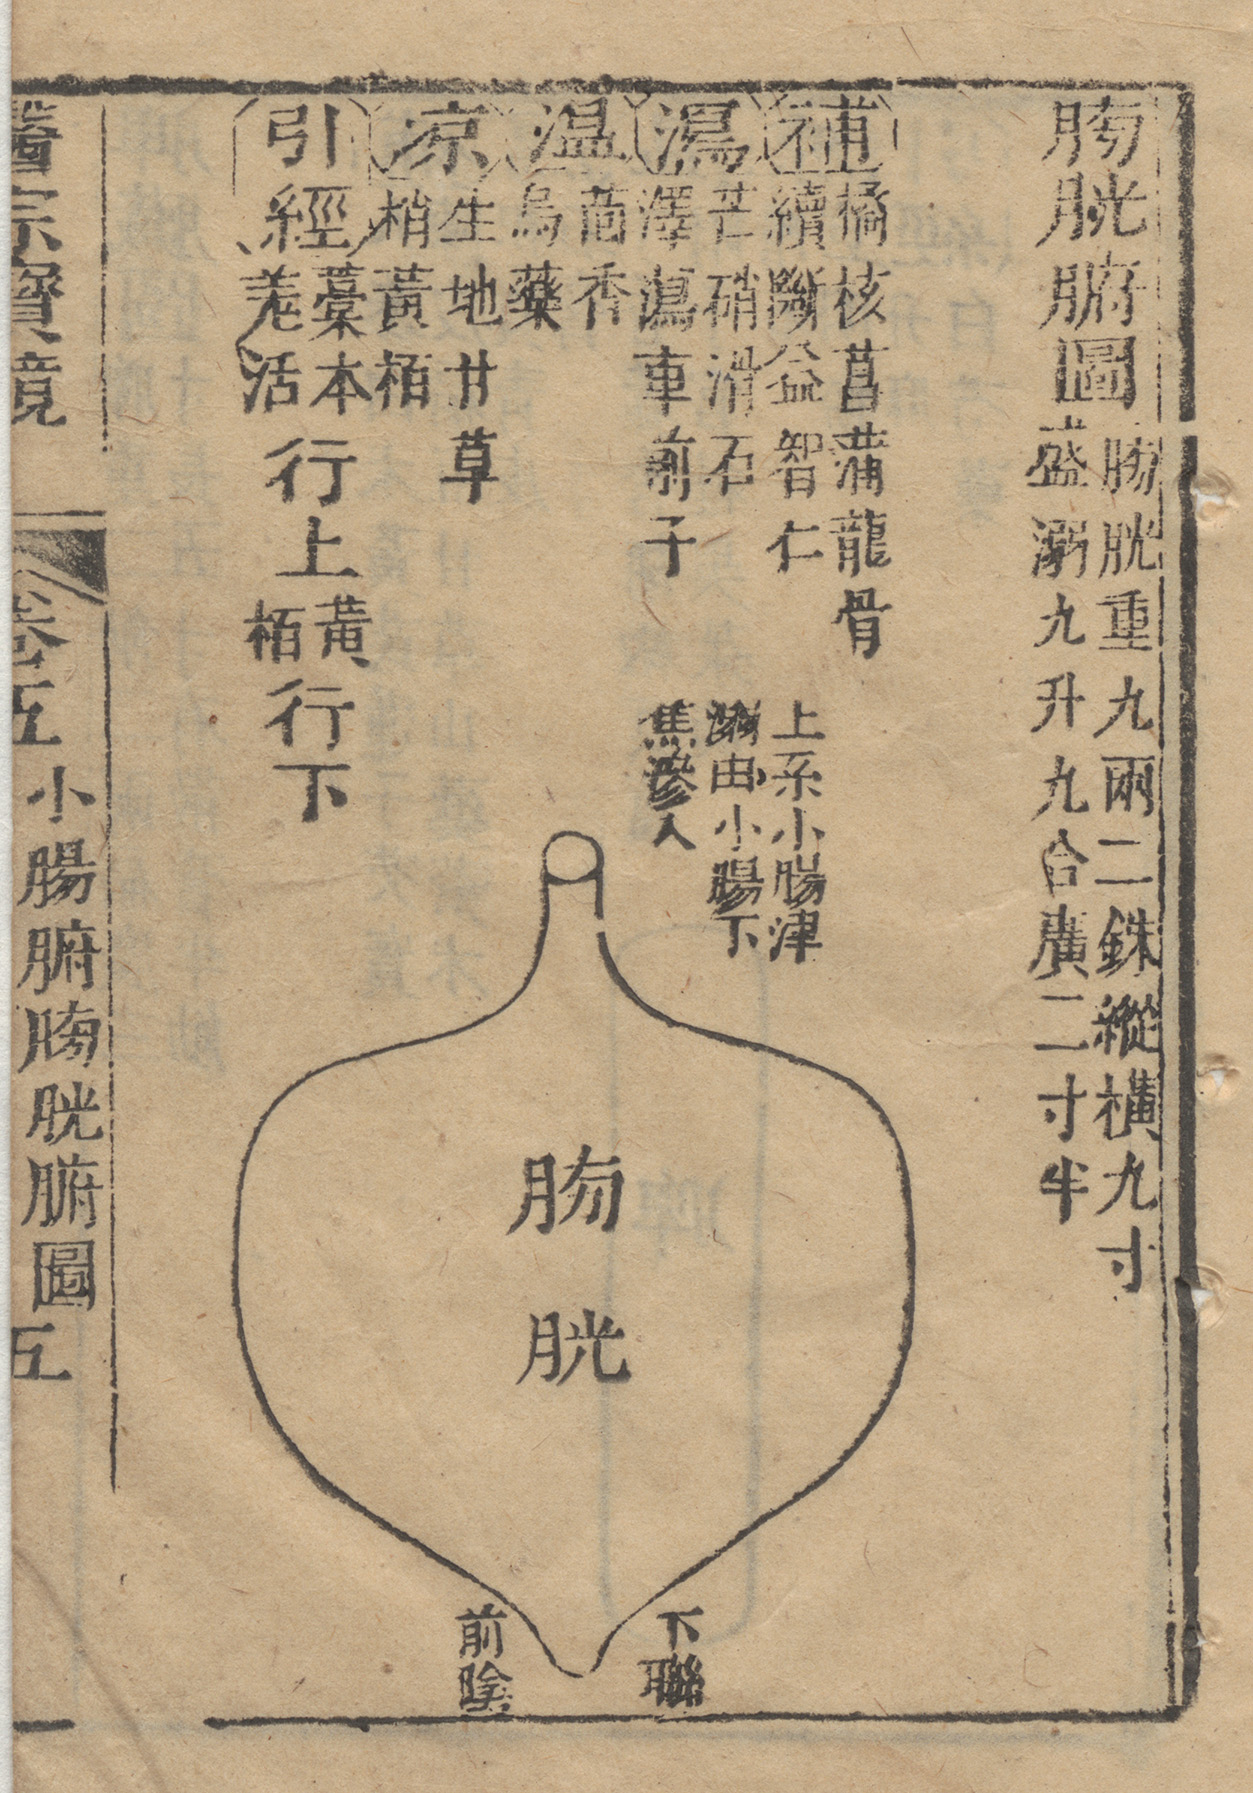 膀胱腑圖
膀胱重九兩二銖縱橫九寸
盛溺九升九合廣二寸半
補
橘核菖蒲龍骨
續斷益智仁
瀉
芒硝滑石
澤瀉車前子
温
茴香
烏藥
凉
生地甘草
梢黃栢
引經
藁本
羌活
行上
黃
栢
行下
上系小腸津
由小腸下
焦滲入
膀胱
下聯
前陰
醫宗寶鏡
卷五
小腸腑膀胱腑圖
五